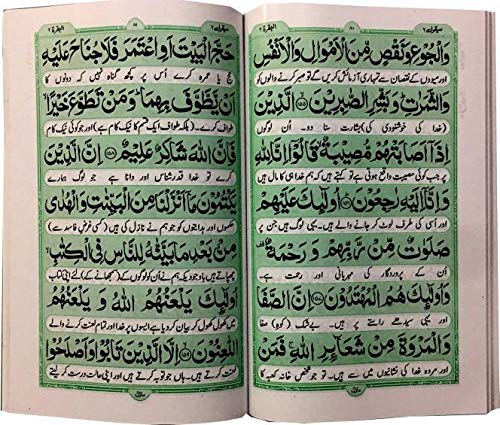 سيقول ٢ ٨٠ البقرة ٢
وَالْجُوْعِ وَنَقْصٍ مِّنَ الْاَمْوَالِ وَالْاَنْفُسِ
اور میووں کے نقصان سے تمہاری آزمائش کریں گے تو صبر کرنے والوں کو
وَالثَّمَرٰتِ ؕ وَبَشِّرِ الصّٰبِرِيْنَ ﴿۱۵۵﴾ الَّذِيْنَ
(خدا کی خوشنودی کی) بشارت سنا دو۔ ان لوگوں
اِذَاۤ اَصَابَتْهُمْ مُّصِيْبَةٌ ۙ قَالُوْۤا اِنَّا لِلّٰهِ
پر جب کوئی مصیبت واقع ہوتی ہے تو کہتے ہیں کہ ہم خدا ہی کا مال ہیں
وَاِنَّاۤ اِلَيْهِ رٰجِعُوْنَ ﴿۱۵۶﴾ اُولٰٓئِكَ عَلَيْهِمْ
اور اسی کی طرف لوٹ کر جانے والے ہیں۔ یہی لوگ ہیں جن پر
صَلَوٰتٌ مِّنْ رَّبِّهِمْ وَرَحْمَةٌ ۟
ان کے پروردگار کی مہربانی اور رحمت ہے
وَاُولٰٓئِكَ هُمُ الْمُهْتَدُوْنَ ﴿۱۵۷﴾ اِنَّ الصَّفَا
اور یہی سیدھے راستے پر ہیں۔ بےشک (کوہ) صفا
وَالْمَرْوَةَ مِنْ شَعَآئِرِ اللّٰهِ ۚ فَمَنْ
اور مروہ خدا کی نشانیوں میں سے ہیں۔ تو جو شخص خانہ کعبہ کا
سيقول ٢ ٨١ البقرة ٢
حَجَّ الْبَيْتَ اَوِ اعْتَمَرَ فَلَا جُنَاحَ عَلَيْهِ
حج یا عمرہ کرے اُس پر کچھ گناہ نہیں کہ دونوں کا
اَنْ يَّطَّوَّفَ بِهِمَا ؕ وَمَنْ تَطَوَّعَ خَيْرًا ۙ
طواف کرے۔ (بلکہ طواف ایک قسم کا نیک کام ہے) اور جو کوئی نیک کام
فَاِنَّ اللّٰهَ شَاكِرٌ عَلِيْمٌ ﴿۱۵۸﴾ اِنَّ الَّذِيْنَ
کرے تو خدا قدر شناس اور دانا ہے جو لوگ ہمارے
يَكْتُمُوْنَ مَاۤ اَنْزَلْنَا مِنَ الْبَيِّنٰتِ وَالْهُدٰى
حکموں اور ہدایتوں کو جو ہم نے نازل کی ہیں (کسی غرض فاسد سے)
مِنْۢ بَعْدِ مَا بَيَّنّٰهُ لِلنَّاسِ فِى الْكِتٰبِ ۙ
چھپاتے ہیں باوجودیکہ ہم نے اُن کو لوگوں کے (سمجھانے کے) لئے اپنی کتاب
اُولٰٓئِكَ يَلْعَنُهُمُ اللّٰهُ وَيَلْعَنُهُمُ
میں کھول کھول کر بیان کر دیا ہے ایسوں پر خدا اور تمام لعنت کرنے والے
اللّٰعِنُوْنَ ﴿۱۵۹﴾ اِلَّا الَّذِيْنَ تَابُوْا وَاَصْلَحُوْا
لعنت کرتے ہیں۔ ہاں جو توبہ کرتے ہیں اور اپنی حالت درست کر لیتے